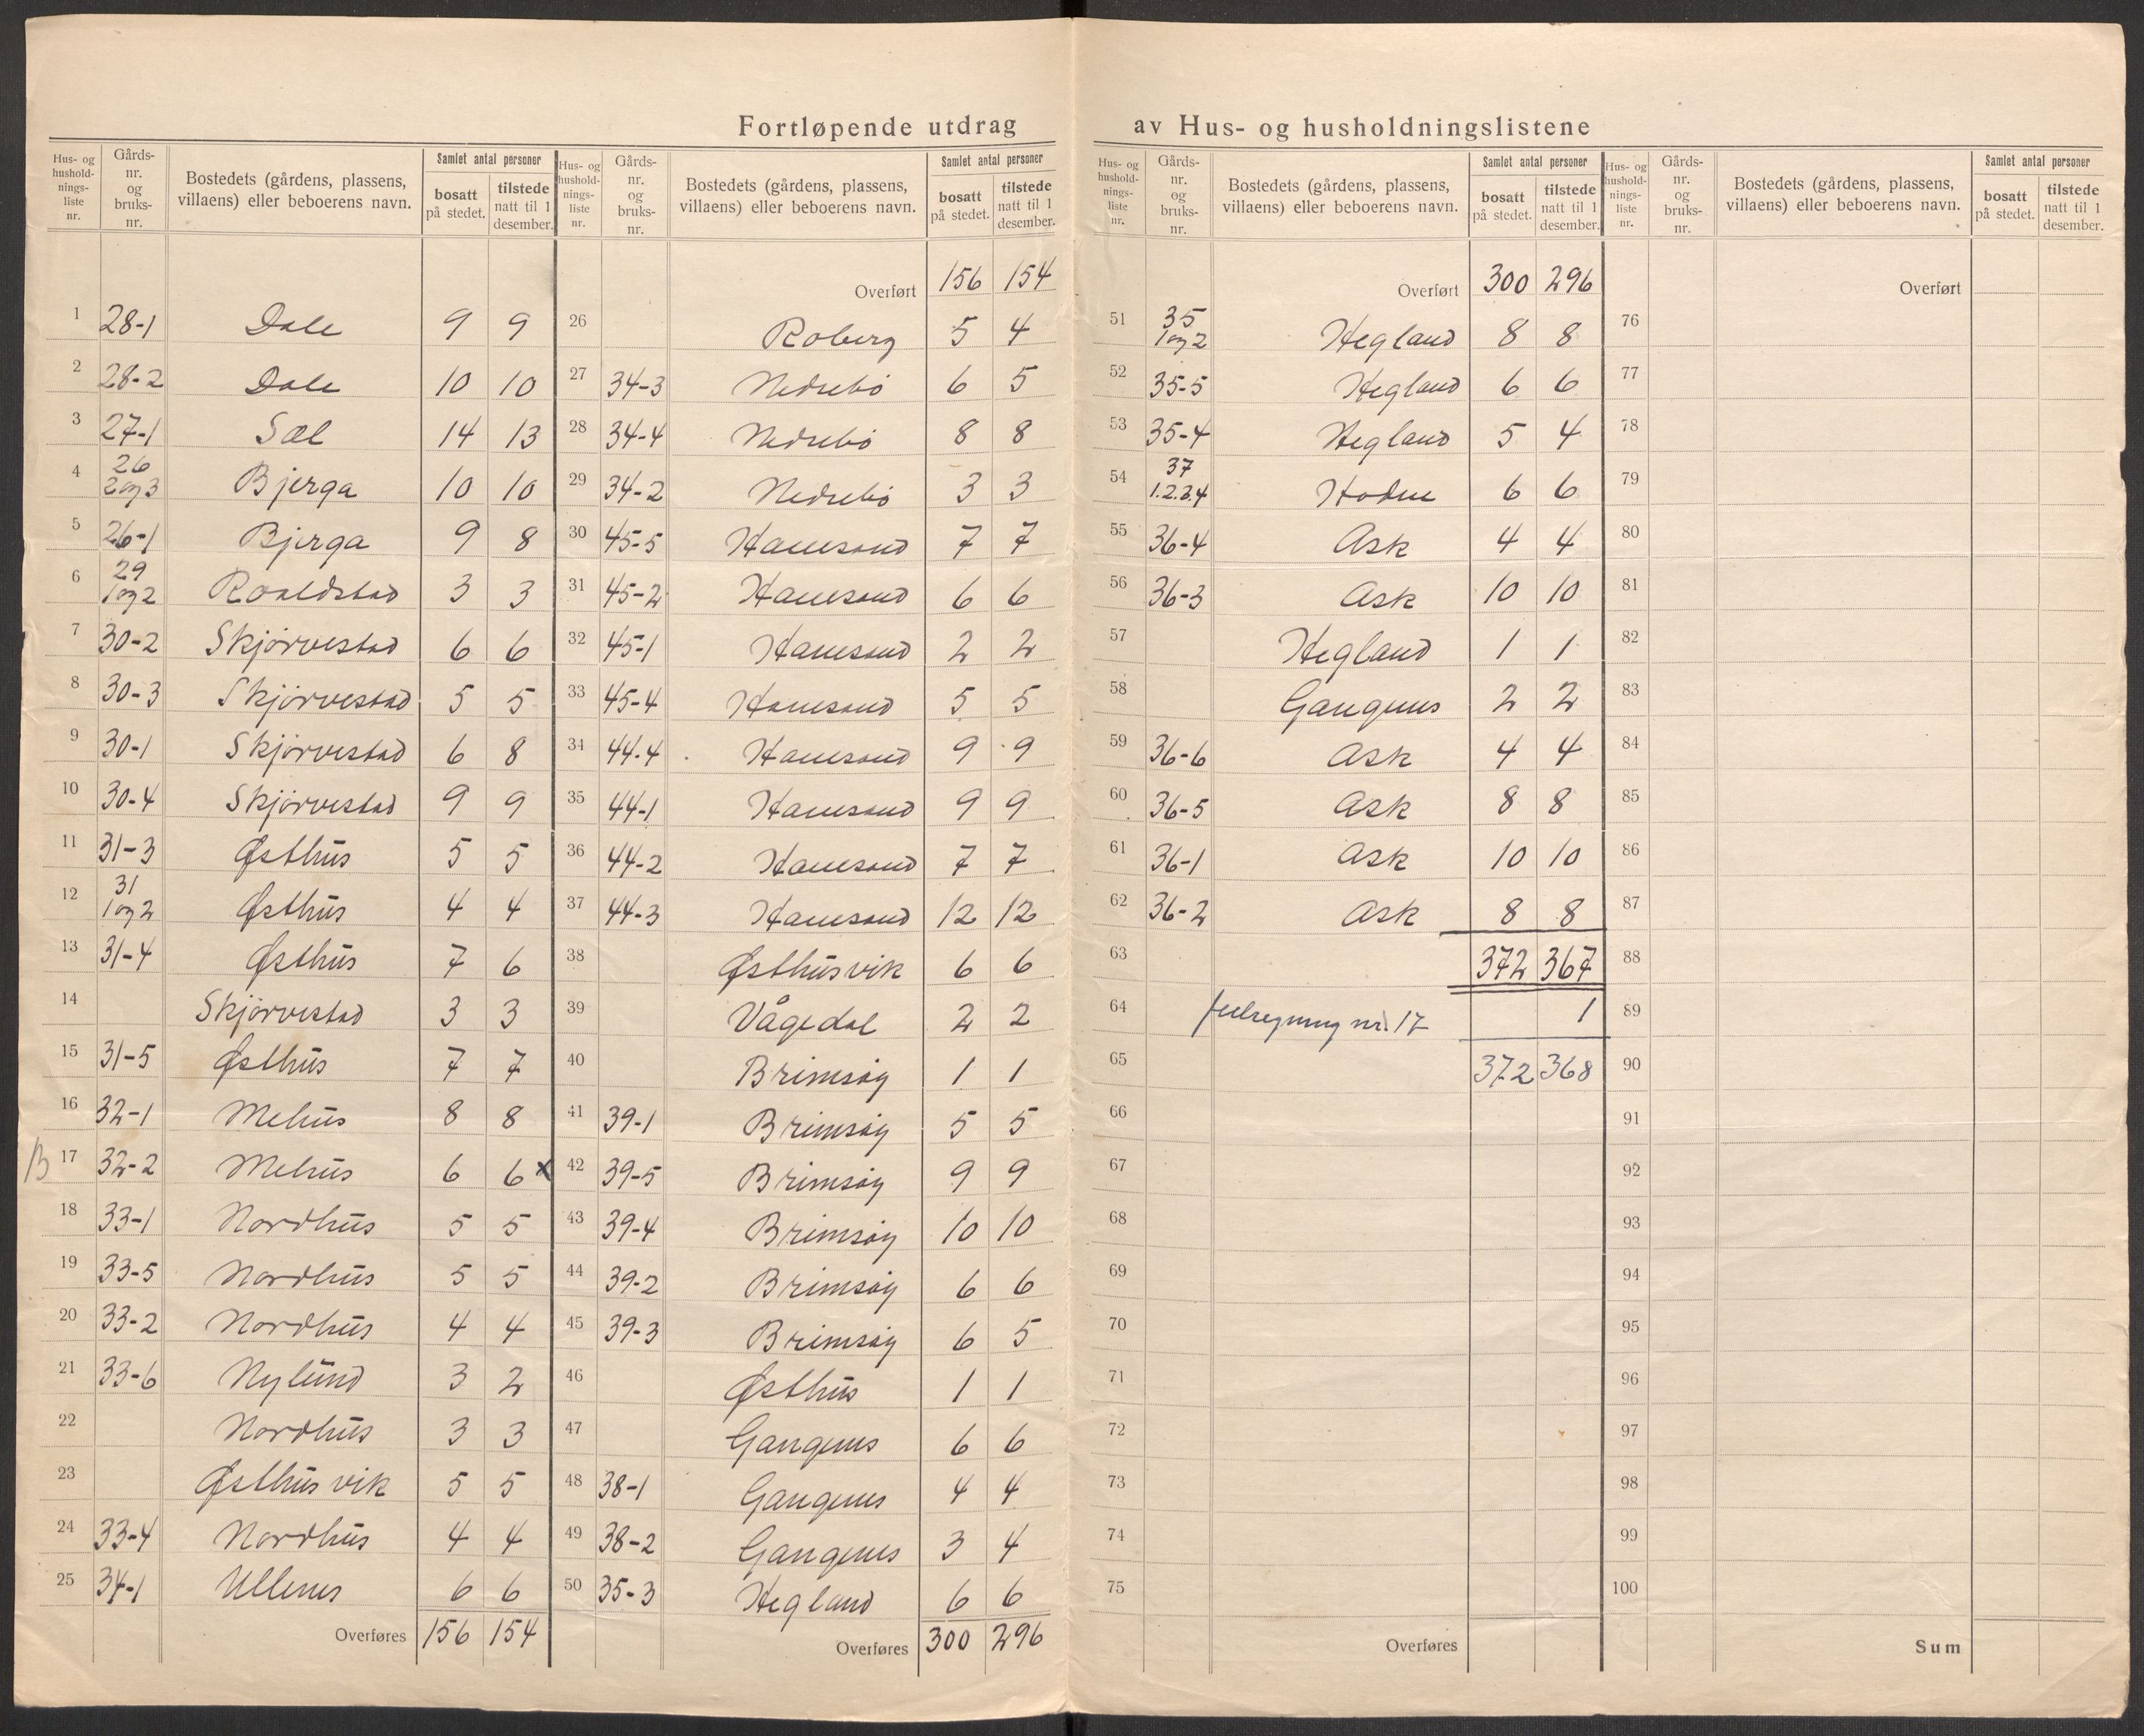 Fortløpende utdrag av Hus- og husholdningslistene
Hus- og hushold-nings-liste nr. | Gårds-nr. og bruks-nr. | Bostedets (gårdens, plassens, villaens) eller beboerens navn. | Samlet antal personer: bosatt på stedet. | tilstede natt til 1 desember.
1 28-1 Dale 9 9
2 28-2 Dale 10 10
3 27-1 Sæl 14 13
4 26 2 og 3 Bjerga 10 10
5 26-1 Bjerga 9 8
6 29 1 og 2 Roaldstad 3 3
7 30-2 Skjörvestad 6 6
8 30-3 Skjörvestad 5 5
9 30-1 Skjörvestad 6 8
10 30-4 Skjörvestad 9 9
11 31-3 Østhus 5 5
12 31 1 og 2 Østhus 4 4
13 31-4 Østhus 7 6
14 Skjörvestad 3 3
15 31-5 Østhus 7 7
16 32-1 Mehus 8 8
B 17 32-2 Mehus 6 6 x
18 33-1 Nordhus 5 5
19 33-5 Nordhus 5 5
20 33-2 Nordhus 4 4
21 33-6 Nylund 3 2
22 Nordhus 3 3
23 Østhusvik 5 5
24 33-4 Nordhus 4 4
25 34-1 Ullenes 6 6
Overføres 156 154
Hus- og hushold-nings-liste nr. | Gårds-nr. og bruks-nr. | Bostedets (gårdens, plassens, villaens) eller beboerens navn. | Samlet antal personer: bosatt på stedet. | tilstede natt til 1 desember.
Overført 156 154
26 Roberg 5 4
27 34-3 Nedrebö 6 5
28 34-4 Nedrebö 8 8
29 34-2 Nedrebö 3 3
30 45-5 Hanesand 7 7
31 45-2 Hanesand 6 6
32 45-1 Hanesand 2 2
33 45-4 Hanesand 5 5
34 44-4 Hanesand 9 9
35 44-1 Hanesand 9 9
36 44-2 Hanesand 7 7
37 44-3 Hanesand 12 12
38 Østhusvik 6 6
39 Vågedal 2 2
40 Brimsöy 1 1
41 39-1 Brimsöy 5 5
42 39-5 Brimsöy 9 9
43 39-4 Brimsöy 10 10
44 39-2 Brimsöy 6 6
45 39-3 Brimsöy 6 5
46 Østhus 1 1
47 Gangenes 6 6
48 38-1 Gangenes 4 4
49 38-2 Gangenes 3 4
50 35-3 Hegland 6 6
Overføres 300 296
Hus- og hushold-nings-liste nr. | Gårds-nr. og bruks-nr. | Bostedets (gårdens, plassens, villaens) eller beboerens navn. | Samlet antal personer: bosatt på stedet. | tilstede natt til 1 desember.
Overført 300 296
51 35 1 og 2 Hegland 8 8
52 35-5 Hegland 6 6
53 35-4 Hegland 5 4
54 37 1.2.3.4 Hodne 6 6
55 36-4 Ask 4 4
56 36-3 Ask 10 10
57 Hegland 1 1
58 Gangenes 2 2
59 36-6 Ask 4 4
60 36-5 Ask 8 8
61 36-1 Ask 10 10
62 36-2 Ask 8 8
63 372 367
64 feilregning nr. 17 1
65 372 368
66
67
68
69
70
71
72
73
74
75
Overføres
Hus- og hushold-nings-liste nr. | Gårds-nr. og bruks-nr. | Bostedets (gårdens, plassens, villaens) eller beboerens navn. | Samlet antal personer: bosatt på stedet. | tilstede natt til 1 desember.
Overført
76
77
78
79
80
81
82
83
84
85
86
87
88
89
90
91
92
93
94
95
96
97
98
99
100
Sum